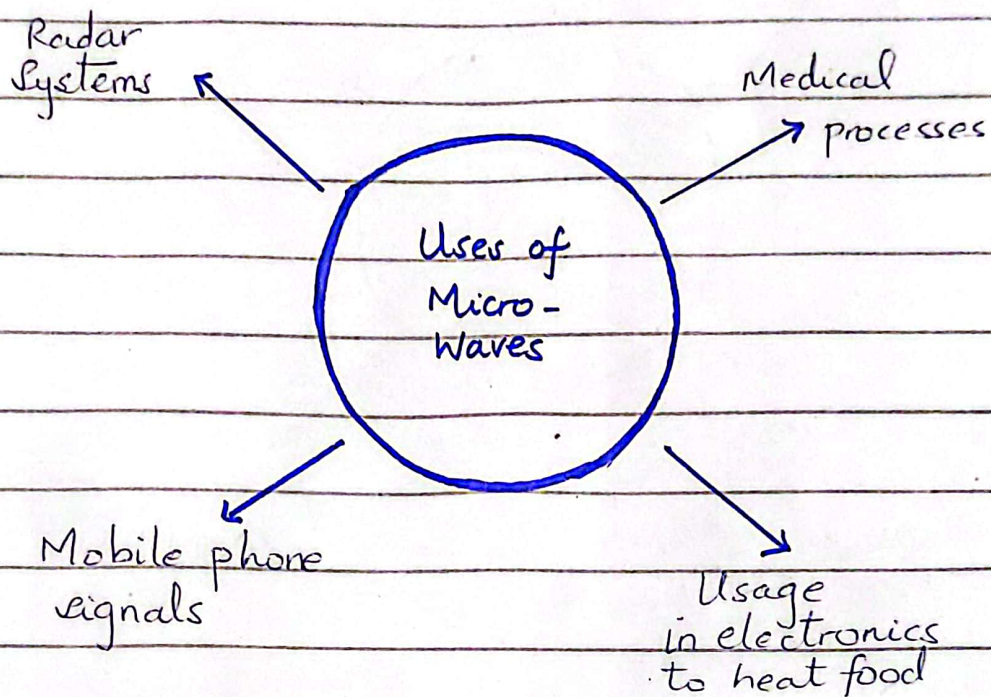 Radar
Systems
Medical
processes
Uses of
Micro-
Waves
Mobile phone
signals
Usage
in electronics
to heat food